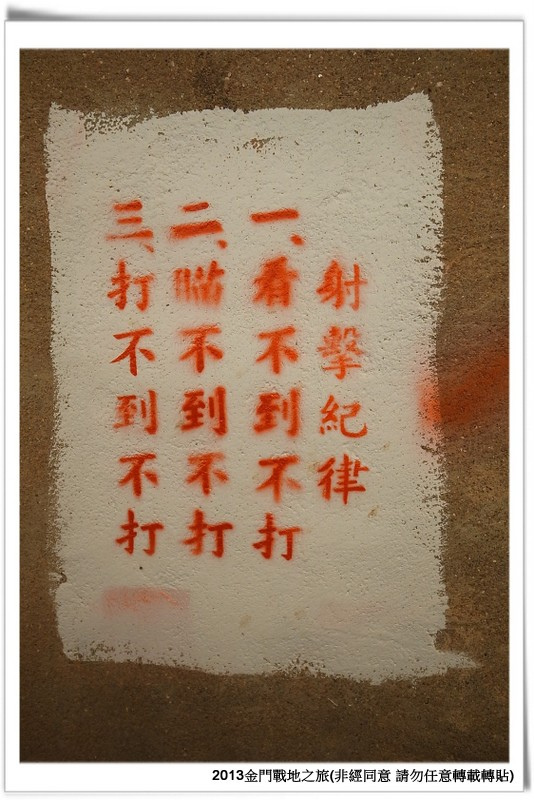 射擊紀律
一、看不到不打
二、瞄不到不打
三、打不到不打
2013金門戰地之旅(非經同意 請勿任意轉載轉貼)